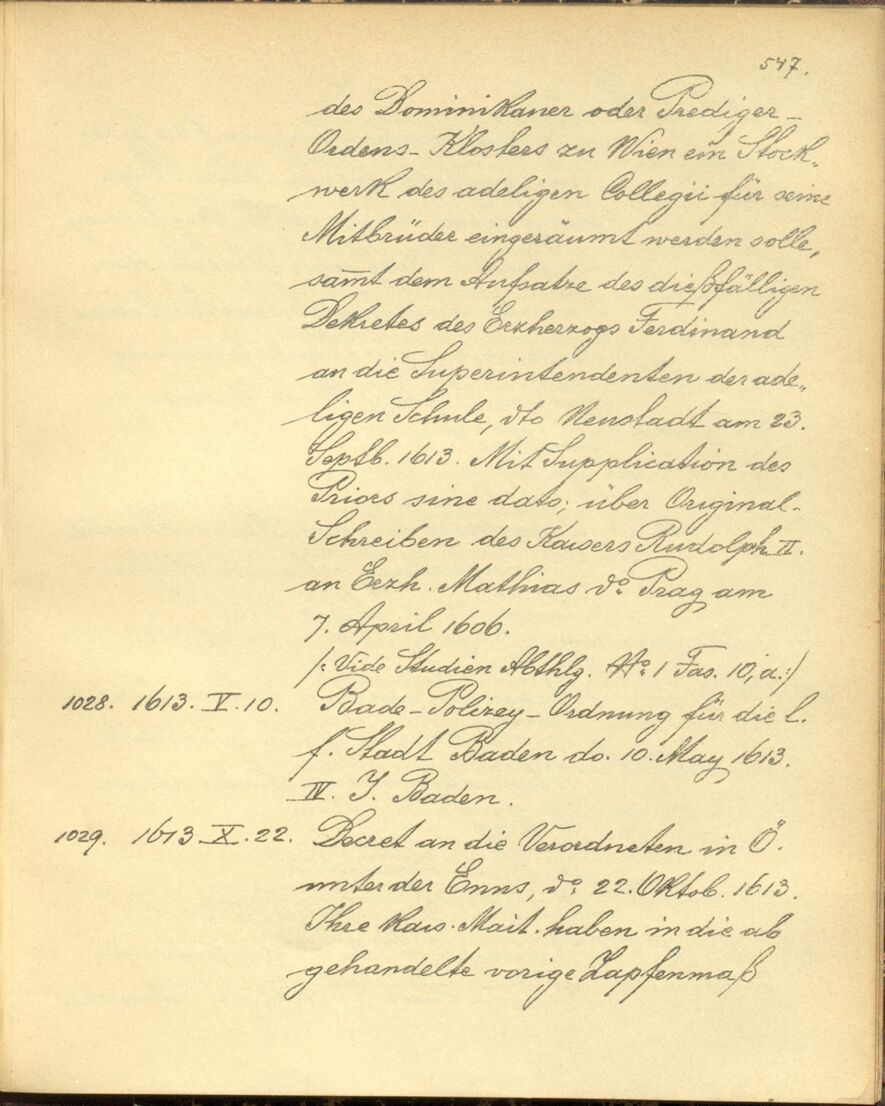 547.
des Dominikaner oder Prediger-
Ordens-Klosters zu Wien ein Stock-
werk des adeligen Collegii für seine
Mitbrüder eingeräumt werden solle,
sam̅t dem Aufsatze des dießfälligen
Dekretes des Erzherzogs Ferdinand
an die Superintendenten der ade„
ligen Schule, dto Neustadt am 23.
Septb. 1613. Mit Supplication des
Priors sine dato; über Original-
Schreiben des Kaisers Rudolph II.
an Erzh. Mathias do Prag am
7. April 1606.
/: Vide Studien Abthlg. No 1 Fas. 10, a:/
1028. 1613. V. 10. Bade-Polizey-Ordnung für die l.
f. Stadt Baden do. 10. May 1613.
IV. J. Baden.
1029. 1613. X. 22. Decret an die Verordneten in Ö.
unter der Enns, do 22. Oktob. 1613.
Ihre kais. Mait. haben in die ab
gehandelte vorige Zapfenmaß